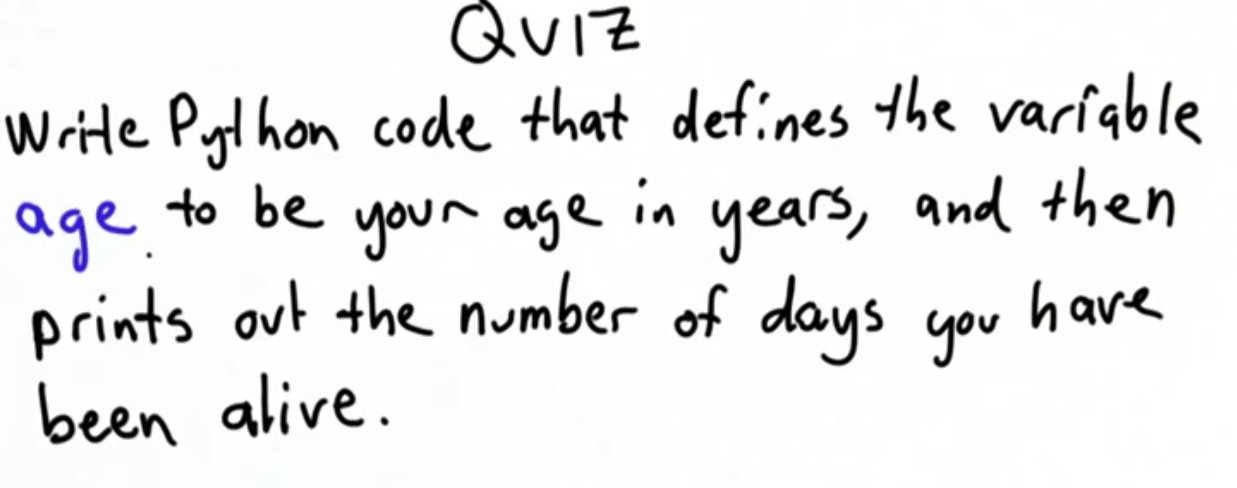 QUIZ
Write Python code that defines the variable
age to be your age in years, and then
prints out the number of days you have
been alive.